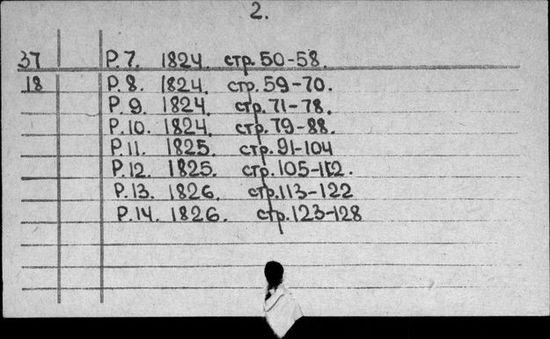 2.
37 Р.7. 1824 стр.50-58.
18 Р.8. 1824. стр.59-70.
Р.9. 1824. стр.71-78.
Р.10. 1824. стр.79-88.
Р.11. 1825. стр.91-104
Р.12. 1825. стр.105-112.
Р.13. 1826. стр.113-122
Р.14. 1826. стр.123-128